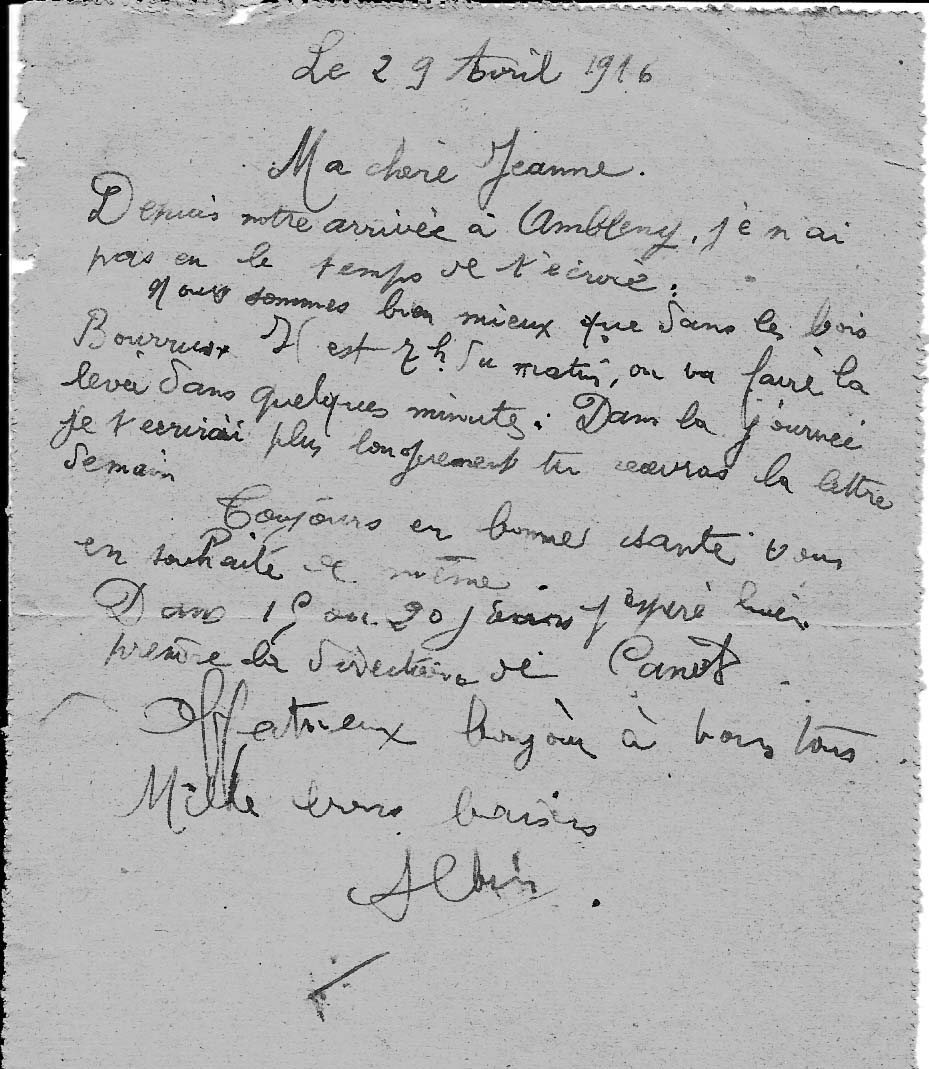 Le 29 Avril 1916
Ma chère Jeanne.
Depuis notre arrivée à Ambleny, je n ai
pas eu le temps de t'écrire.
Nous sommes bien mieux que dans les bois
Bourrus. Il est 7h. du matin, on va faire la
levée dans quelques minutes. Dans la journée
je t'ecrirai plus longuement tu recevras la lettre
demain
Toujours en bonne santé vous
en souhaite de même.
Dans 15 ou 20 jours j'espère bien
prendre la direction de Canet
Affectueux bonjour à vous tous.
Mille gros baisers
Albin.